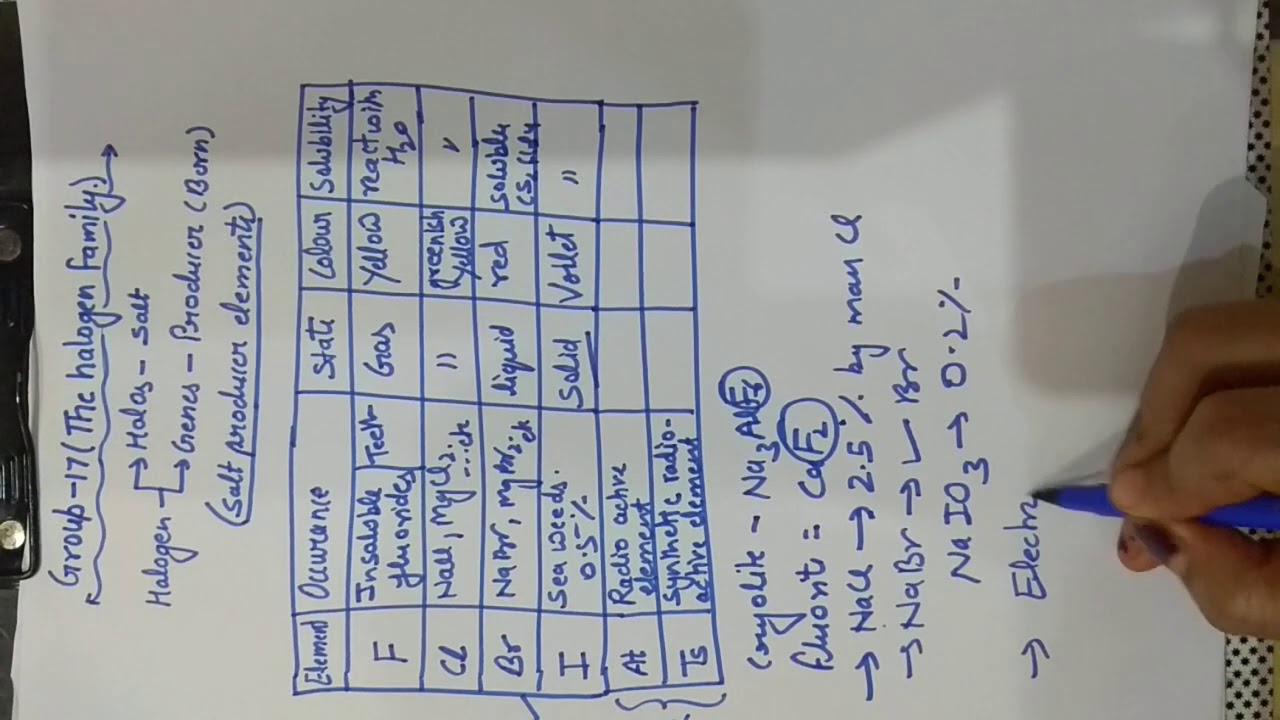 Group-17 (The halogen family)
Halogen → Halas - Salt
→ Genes - Producer (Born)
(Salt producer elements)
Element Occurane State Colour Solubility
F Insoluble fluorides Teeth Gas Yellow react with H2O
Cl NaCl, MgCl2...etc " Greenish Yellow "
Br NaBr, MgBr2.etc liquid red soluble
I Sea weeds. 0.5% Solid Voilet "
At Radio active element
Ts Synthetic radio-active element
Cryolite - Na3AlF6
fluorit = CaF2
→ NaCl → 2.5% by man Cl
→ NaBr → Br
NaIO3 → 0.2%
→ Electr